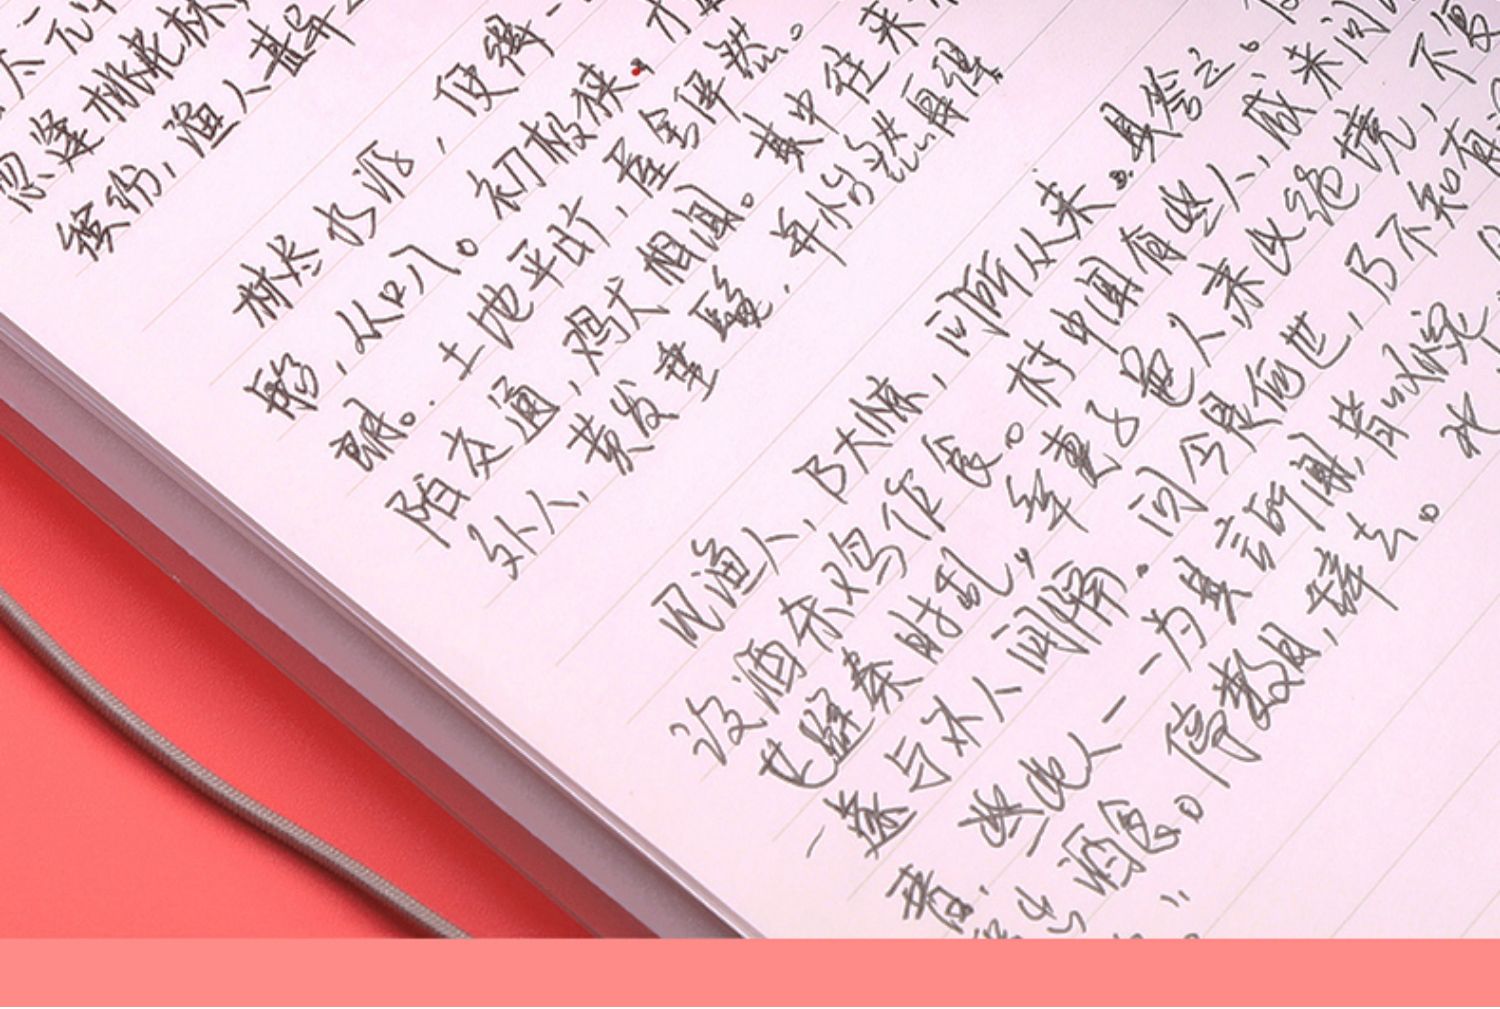 太元中
忽逢桃花林
缤纷，渔人甚异
林尽水源，便得一
船，从口入。初极狭，才
朗。土地平旷，屋舍俨然。
陌交通，鸡犬相闻。其中往来
外人，黄发垂髫，并怡然自得
见渔人，乃大惊，问所从来。具答之。
设酒杀鸡作食。村中闻有此人，咸来问
世避秦时乱，率妻子邑人来此绝境，不复
遂与外人间隔。问今是何世，乃不知有
此人一一为具言所闻，皆叹惋
出酒食。停数日，辞去。此